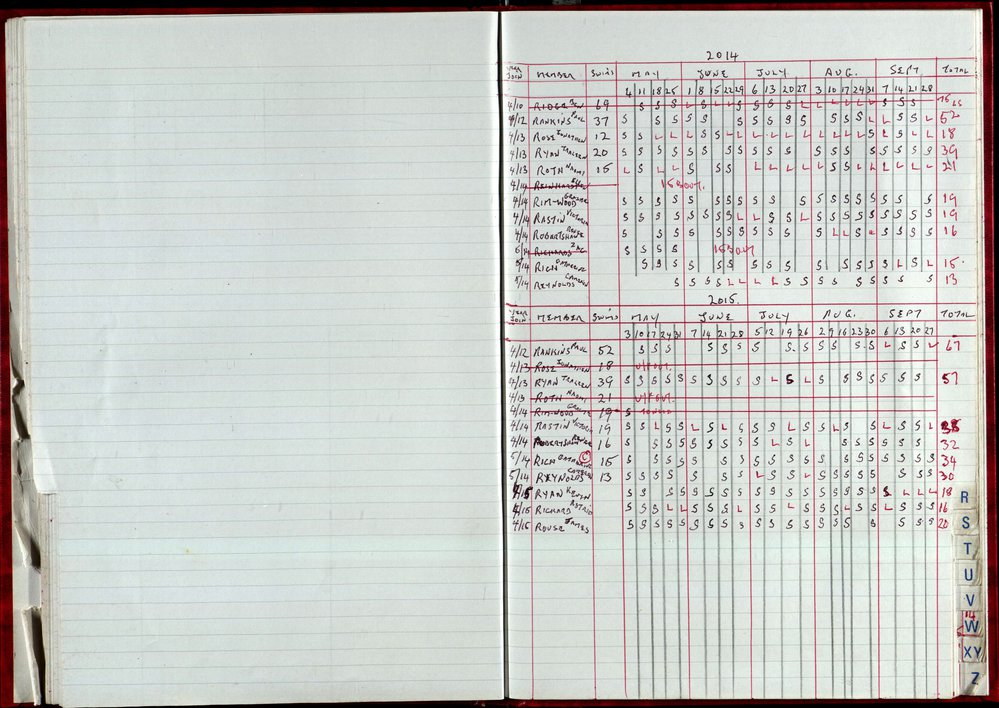 2014
YEAR JOIN MEMBER SWIMS MAY JUNE JULY AUG. SEPT TOTAL
4 11 18 25 1 8 15 22 29 6 13 20 27 3 10 17 24 31 7 14 21 28
4/10 RIDGE BEN 69
4/12 RANKINS PAUL 37 S S S S S S S S S S S S S L L S S L 52
4/13 ROSE JONATHEN 12 S S L L L S S L L L L L L L L L L S L S L L 18
4/13 RYAN TRACEEN 20 S S S S S S S S S S S S S S S S S S S 39
4/13 ROTH NAOMI 15 L S L L S S S L L L L S S L L L L L L 21
4/14
4/14 RIM-WOOD GRAEME S S S S S S S S S S S S S S S S S S S 19
4/14 RASTIN VICTORIA S S S S S S S S L L S S L S S S S S S S S S 19
4/14 ROBERTSHAW S S S S S S S S S S S S L L S L S S S S 16
6/14 RICHARDS ZAC S S S S
5/14 RICH S S S S S S S S S S S S S S L S L 15
5/14 REYNOLDS CAMERON S S S S L L L L S S S S S S S S S S 13
2015.
YEAR JOIN MEMBER SWIMS MAY JUNE JULY AUG. SEPT TOTAL
3 10 17 24 31 7 14 21 28 5 12 19 26 2 9 16 23 30 6 13 20 27
4/12 RANKINS PAUL 52 S S S S S S S S S S S S S S S L S S L 67
4/13 ROSE JONATHEN 18
4/13 RYAN TRACEEN 39 S S S S S S S S S S S L S L S S S S S S S 57
4/13 ROTH NAOMI 21
4/14 RIM-WOOD GRAEME 19 S
4/14 RASTIN VICTORIA 19 S S L S S L S L S S S L S S L S S L S S L
4/14 ROBERTSHAW 16 S S S S S S S S S L S L S S S S S S S 32
5/14 RICH C 15 S S S S S S S S S S S S S S S S S S S 34
5/14 REYNOLDS CAMERON 13 S S S S S S S L S S L S S S S S S S 30
RYAN KEVIN S S S S S S S S S S S S S S S S S S L L L 18
4/15 RICHARD ASTRID S S S L L S S S L S S L S S S L S S L S S S 16
4/15 ROUSE JAMES S S S S S S S S S S S S S S S S S S S S 20
R
S
T
U
V
W
XY
Z